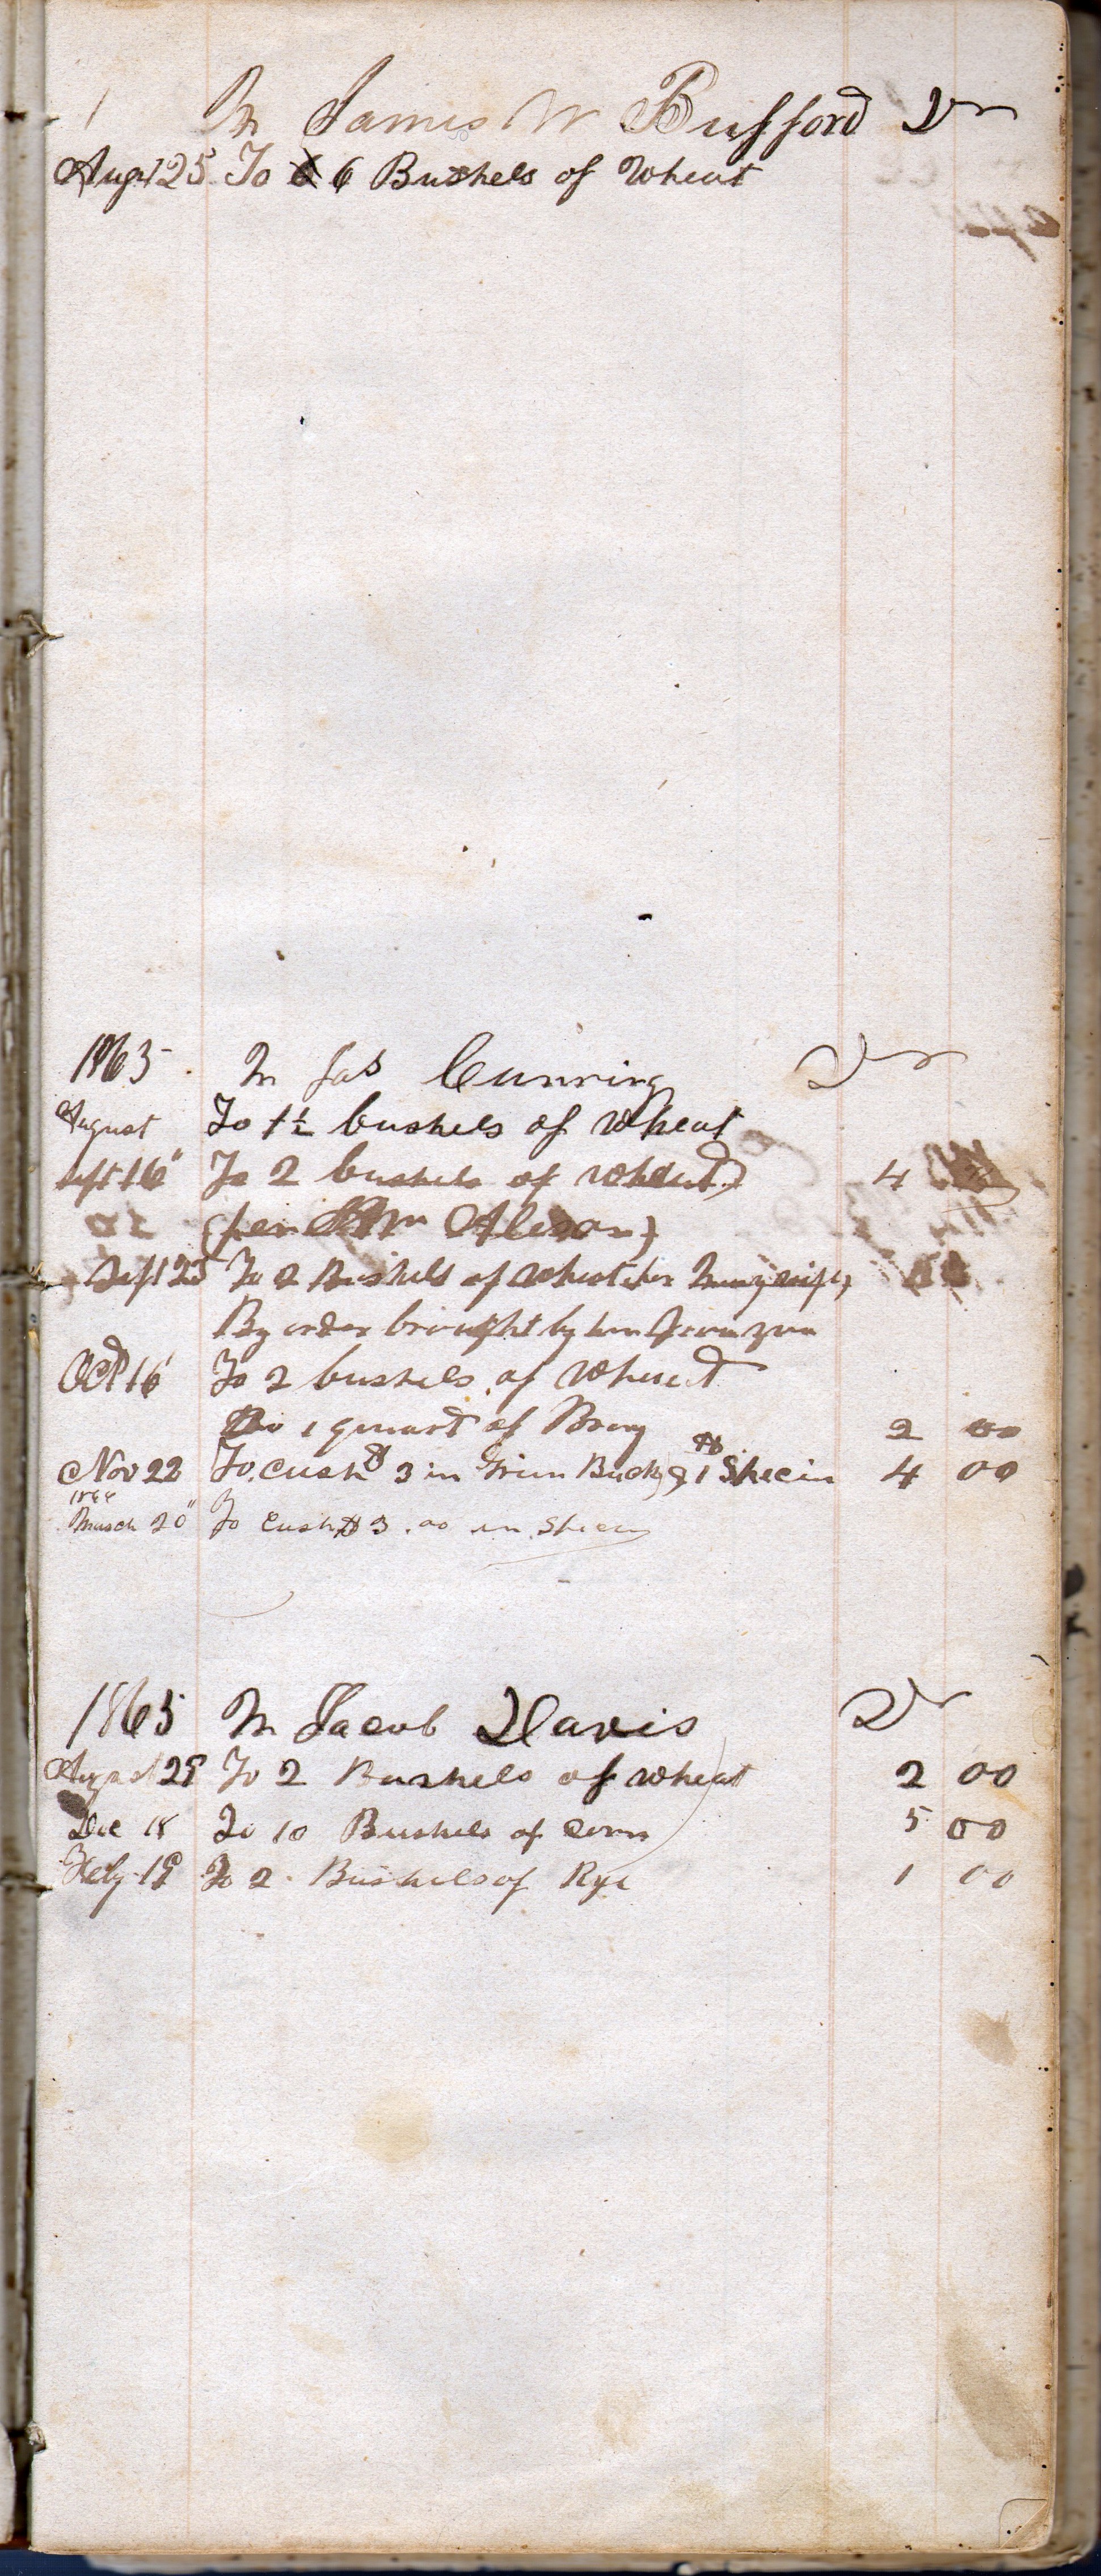 Mr James W Bufford Dr
Augt 25 To 6 Bushels of Wheat
1863 Mr Jas Cunning Dr
August To 1½ bushels of Wheat
Sept 16" To 2 bushels of wheat 4
(per Wm
Sept 25 To 2 Bushels of Wheat
By order brought by
Oct 16 To 2 bushels of Wheat
1 quart of 2 00
Nov 22 To cash $ 3 in Green Back & $ 1 Shecin 4 00
1864
March 20" To Cash $ 3.00 in
1863 Mr Jacob Davis Dr
August 25 To 2 Bushels of wheat 2 00
Dec 18 To 10 Bushels of corn 5 00
Feby 19 To 2 Bushels of Rye 1 00